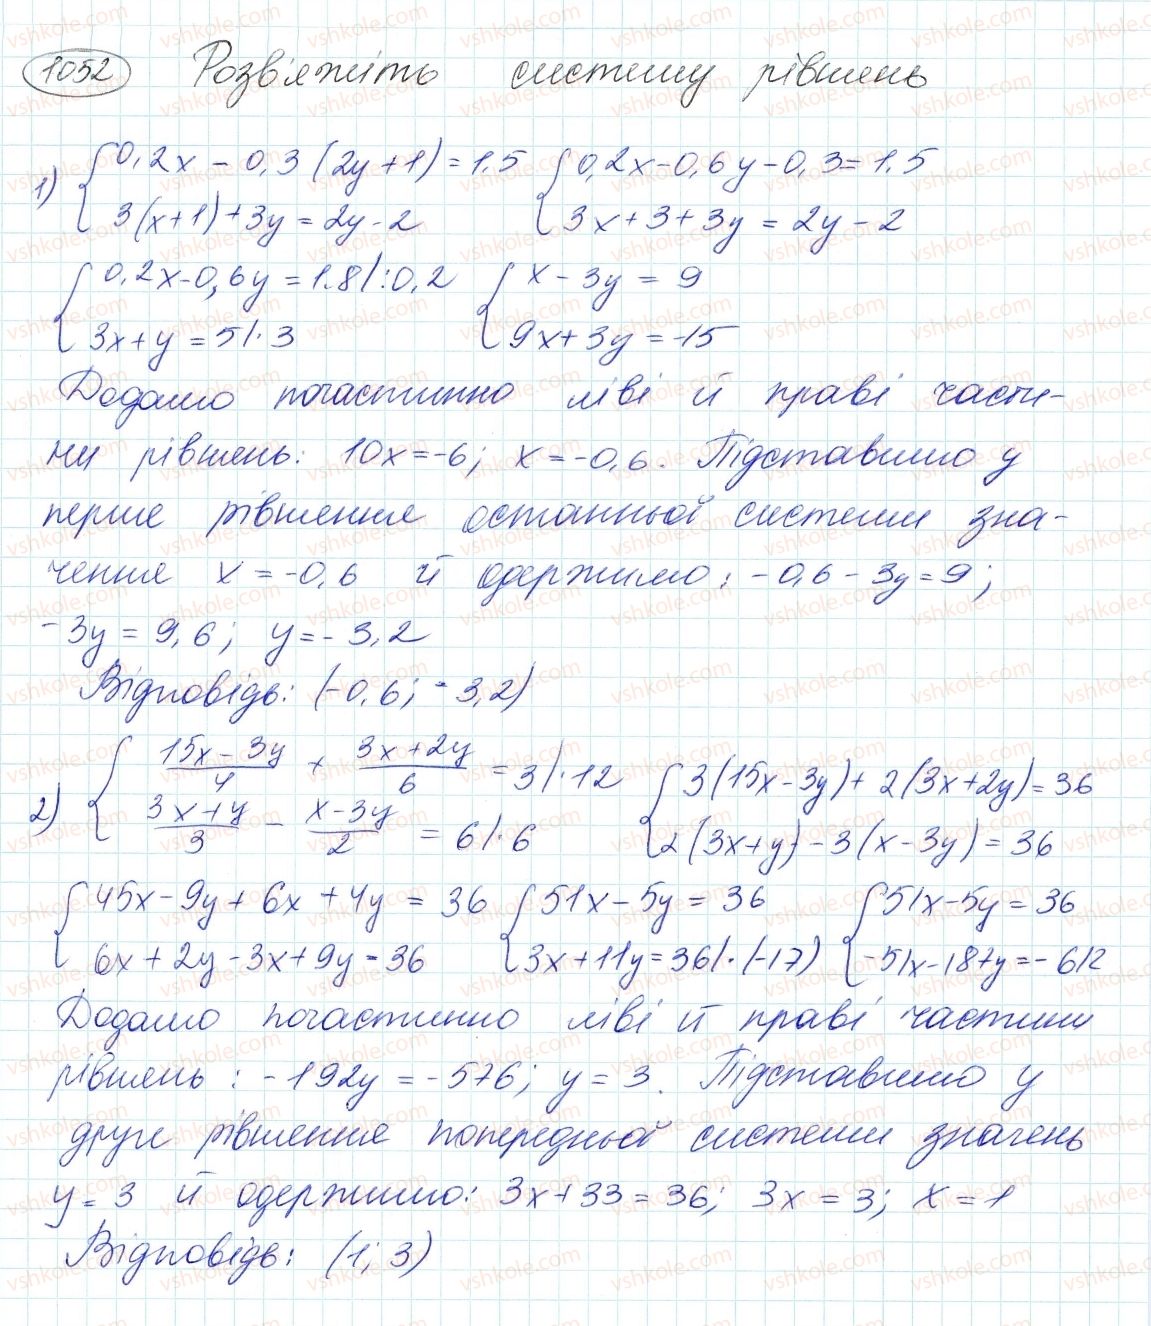 1052 Розв'яжіть систему рівнянь
1) { 0,2x - 0,3(2y+1) = 1,5 { 0,2x - 0,6y - 0,3 = 1,5
3(x+1) + 3y = 2y - 2 3x + 3 + 3y = 2y - 2
{ 0,2x - 0,6y = 1,8 |:0,2 { x - 3y = 9
3x + y = 5 |·3 9x + 3y = -15
Додамо почастинно ліві й праві части-
ни рівнянь: 10x = -6; x = -0,6. Підставимо у
перше рівняння останньої системи зна-
чення x = -0,6 й одержимо: -0,6 - 3y = 9;
-3y = 9,6; y = -3,2
Відповідь: (-0,6; -3,2)
2) { (15x - 3y)/4 + (3x + 2y)/6 = 3 |·12 { 3(15x - 3y) + 2(3x + 2y) = 36
(3x + y)/3 - (x - 3y)/2 = 6 |·6 2(3x + y) - 3(x - 3y) = 36
{ 45x - 9y + 6x + 4y = 36 { 51x - 5y = 36 { 51x - 5y = 36
6x + 2y - 3x + 9y = 36 3x + 11y = 36 |·(-17) -51x - 187y = -612
Додамо почастинно ліві й праві частини
рівнянь: -192y = -576; y = 3. Підставимо у
друге рівняння попередньої системи значень
y = 3 й одержимо: 3x + 33 = 36; 3x = 3; x = 1
Відповідь: (1; 3)